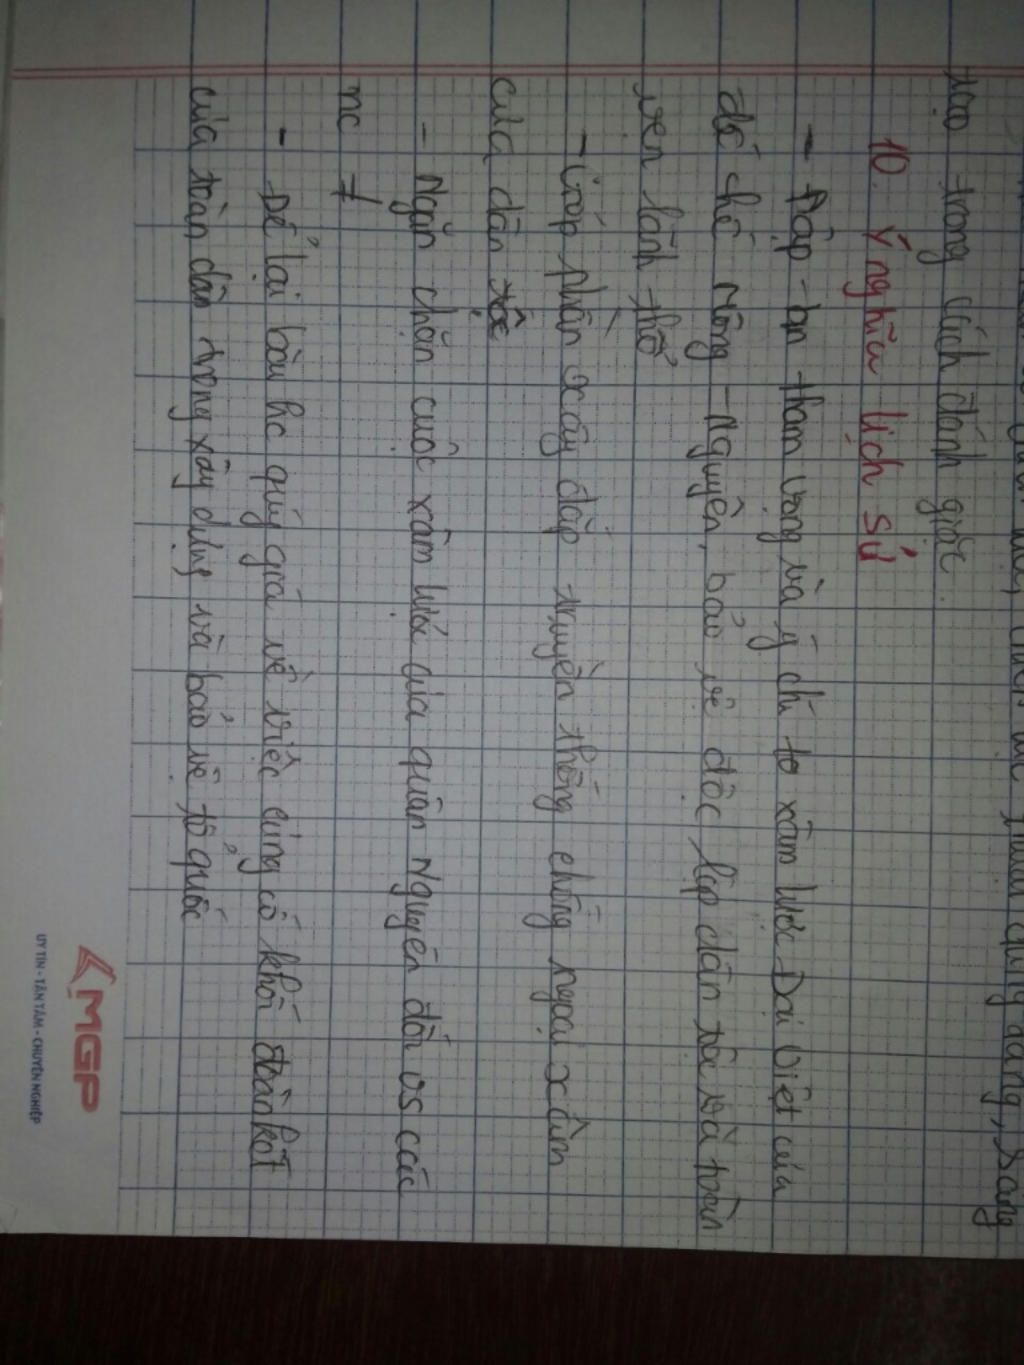 quang đáng, sáng
tạo trong cách đánh giặc.
10. Ý nghĩa lịch sử
- Đập tan tham vọng và ý chí to xâm lược Đại Việt của
đế chế Mông - Nguyên, bảo vệ độc lập dân tộc và toàn
vẹn lãnh thổ
- Góp phần xây đắp truyền thống chống ngoại xâm
của dân tộc
- Ngăn chặn cuộc xâm lược của quân Nguyên đối vs các
nc ≠
- Để lại bài hc quý giá về việc củng cố khối đoàn kết
của toàn dân trong xây dựng và bảo vệ tổ quốc
MGP
UY TÍN - TẬN TÂM - CHUYÊN NGHIỆP